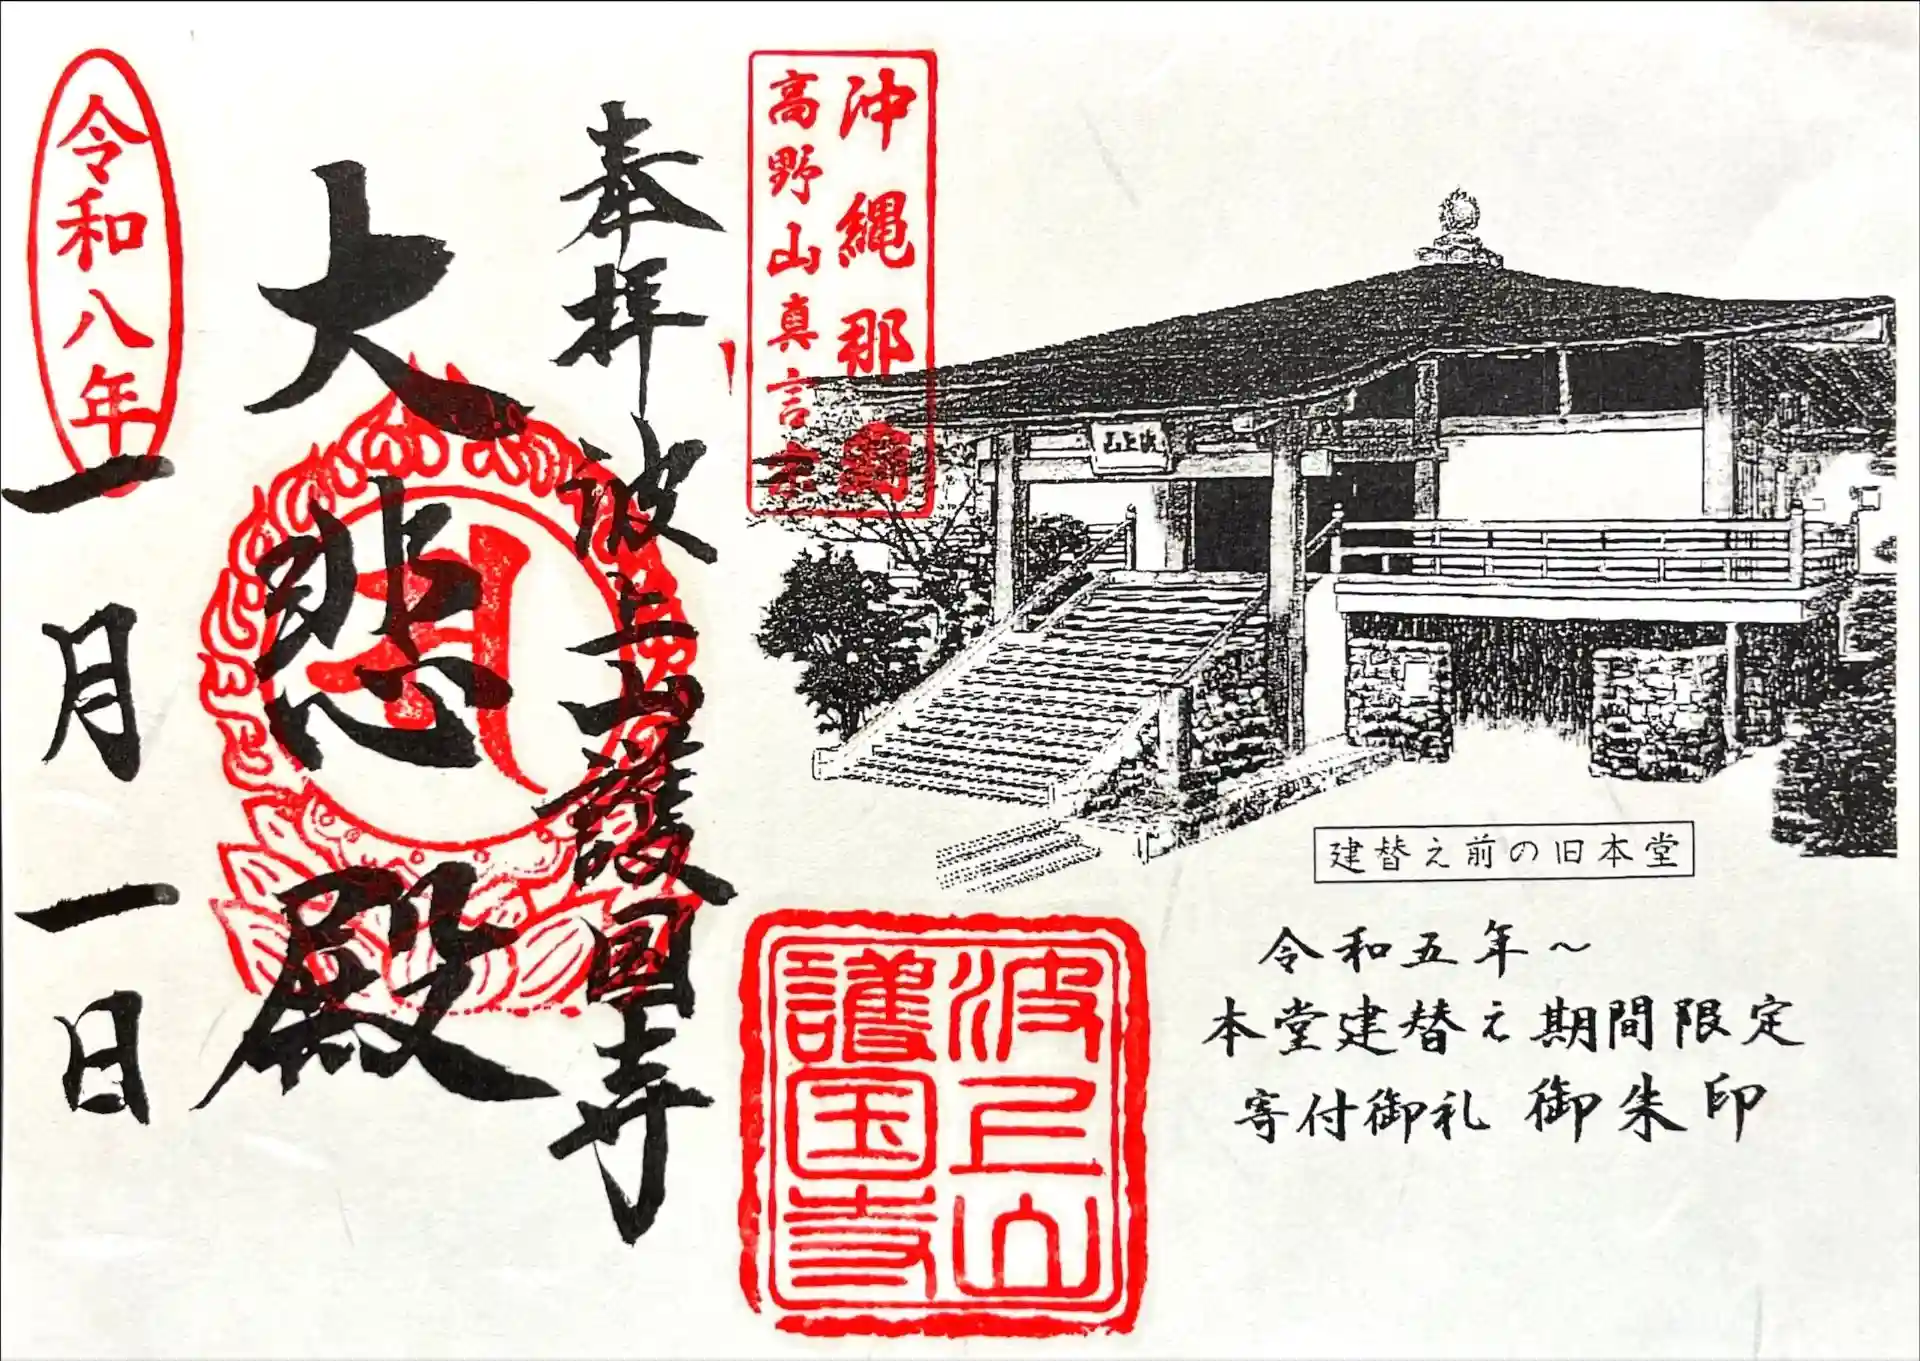 沖縄那覇
高野山真言宗
奉拝
波上山護国寺
大悲殿
令和八年
一月一日
波上山
護国寺
波上山
建替え前の旧本堂
令和五年～
本堂建替え期間限定
寄付御礼 御朱印